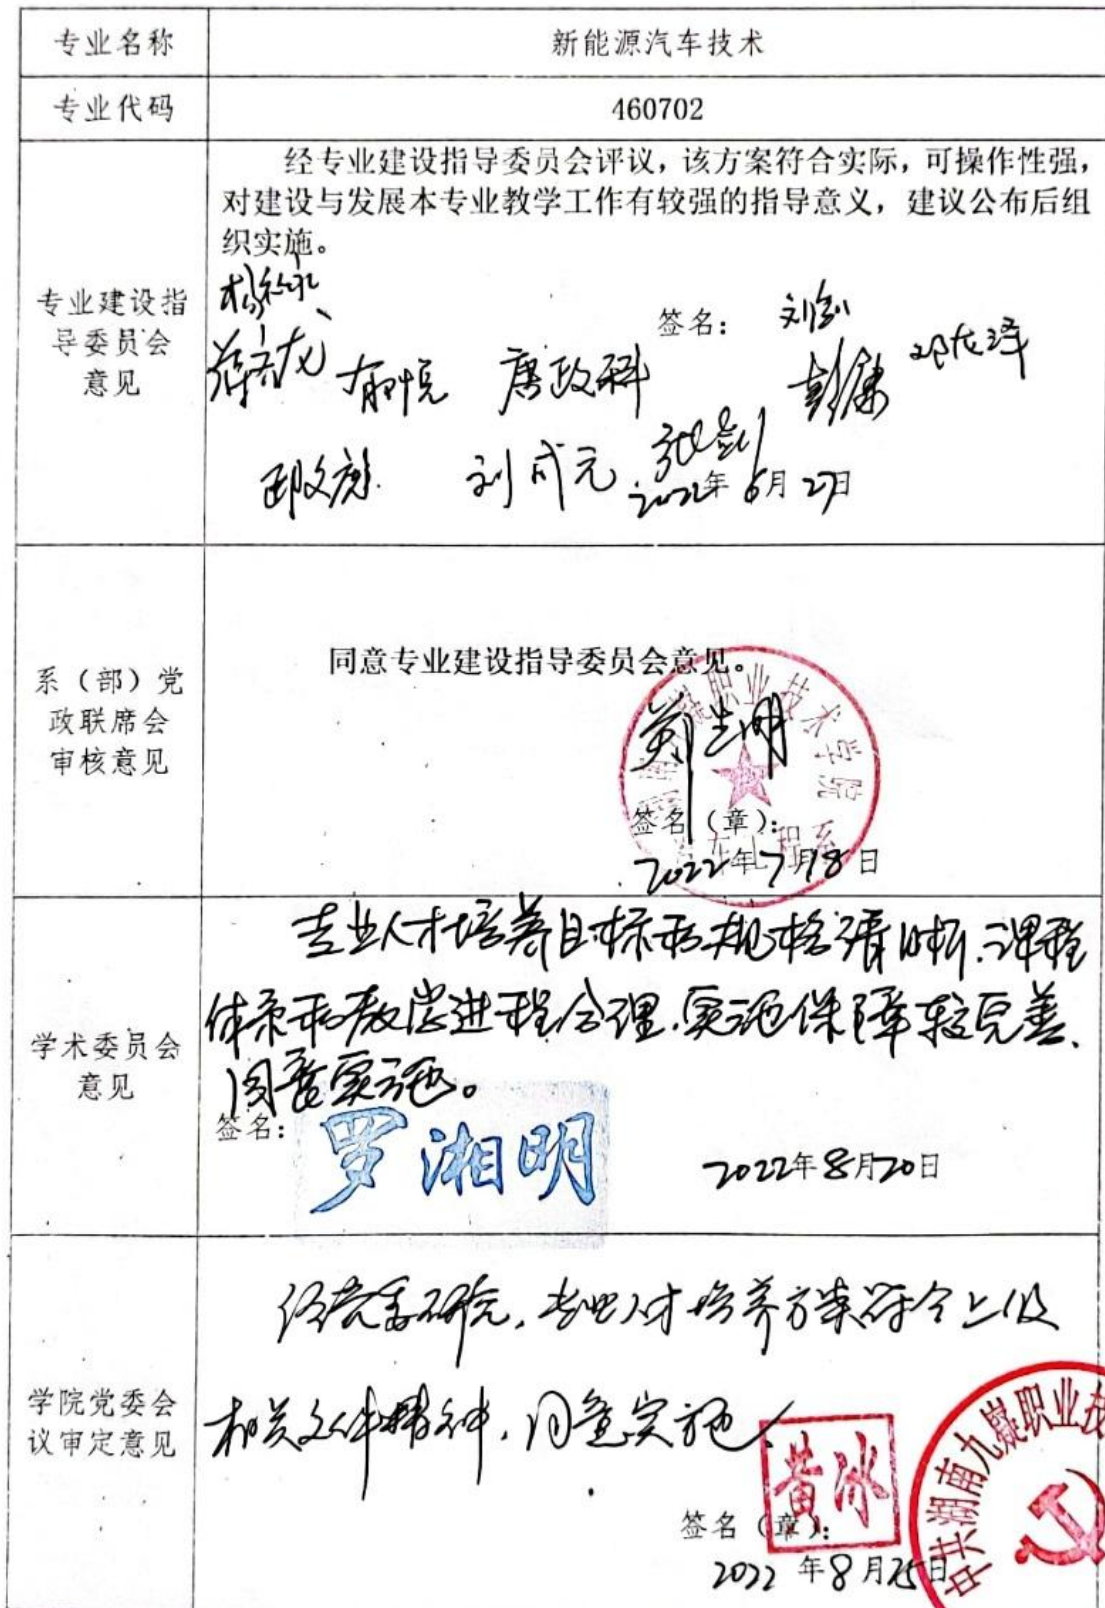 专业名称 新能源汽车技术
专业代码 460702
专业建设指
导委员会
意见
经专业建设指导委员会评议，该方案符合实际，可操作性强，
对建设与发展本专业教学工作有较强的指导意义，建议公布后组
织实施。
签名： 刘剑
唐政科 彭康 邓龙泽
刘成元 张剑
2022年6月27日
系（部）党
政联席会
审核意见
同意专业建设指导委员会意见。
职业技术学院
签名（章）：
2022年7月18日
学术委员会
意见
专业人才培养目标和规格清晰、课程
体系和教学进程合理、实施保障较完善、
同意实施。
签名：罗湘明
2022年8月20日
学院党委会
议审定意见
经党委研究，专业人才培养方案符合上级
相关文件精神，同意实施。
黄冰
签名（章）：
2022年8月25日
中共湖南九嶷职业技